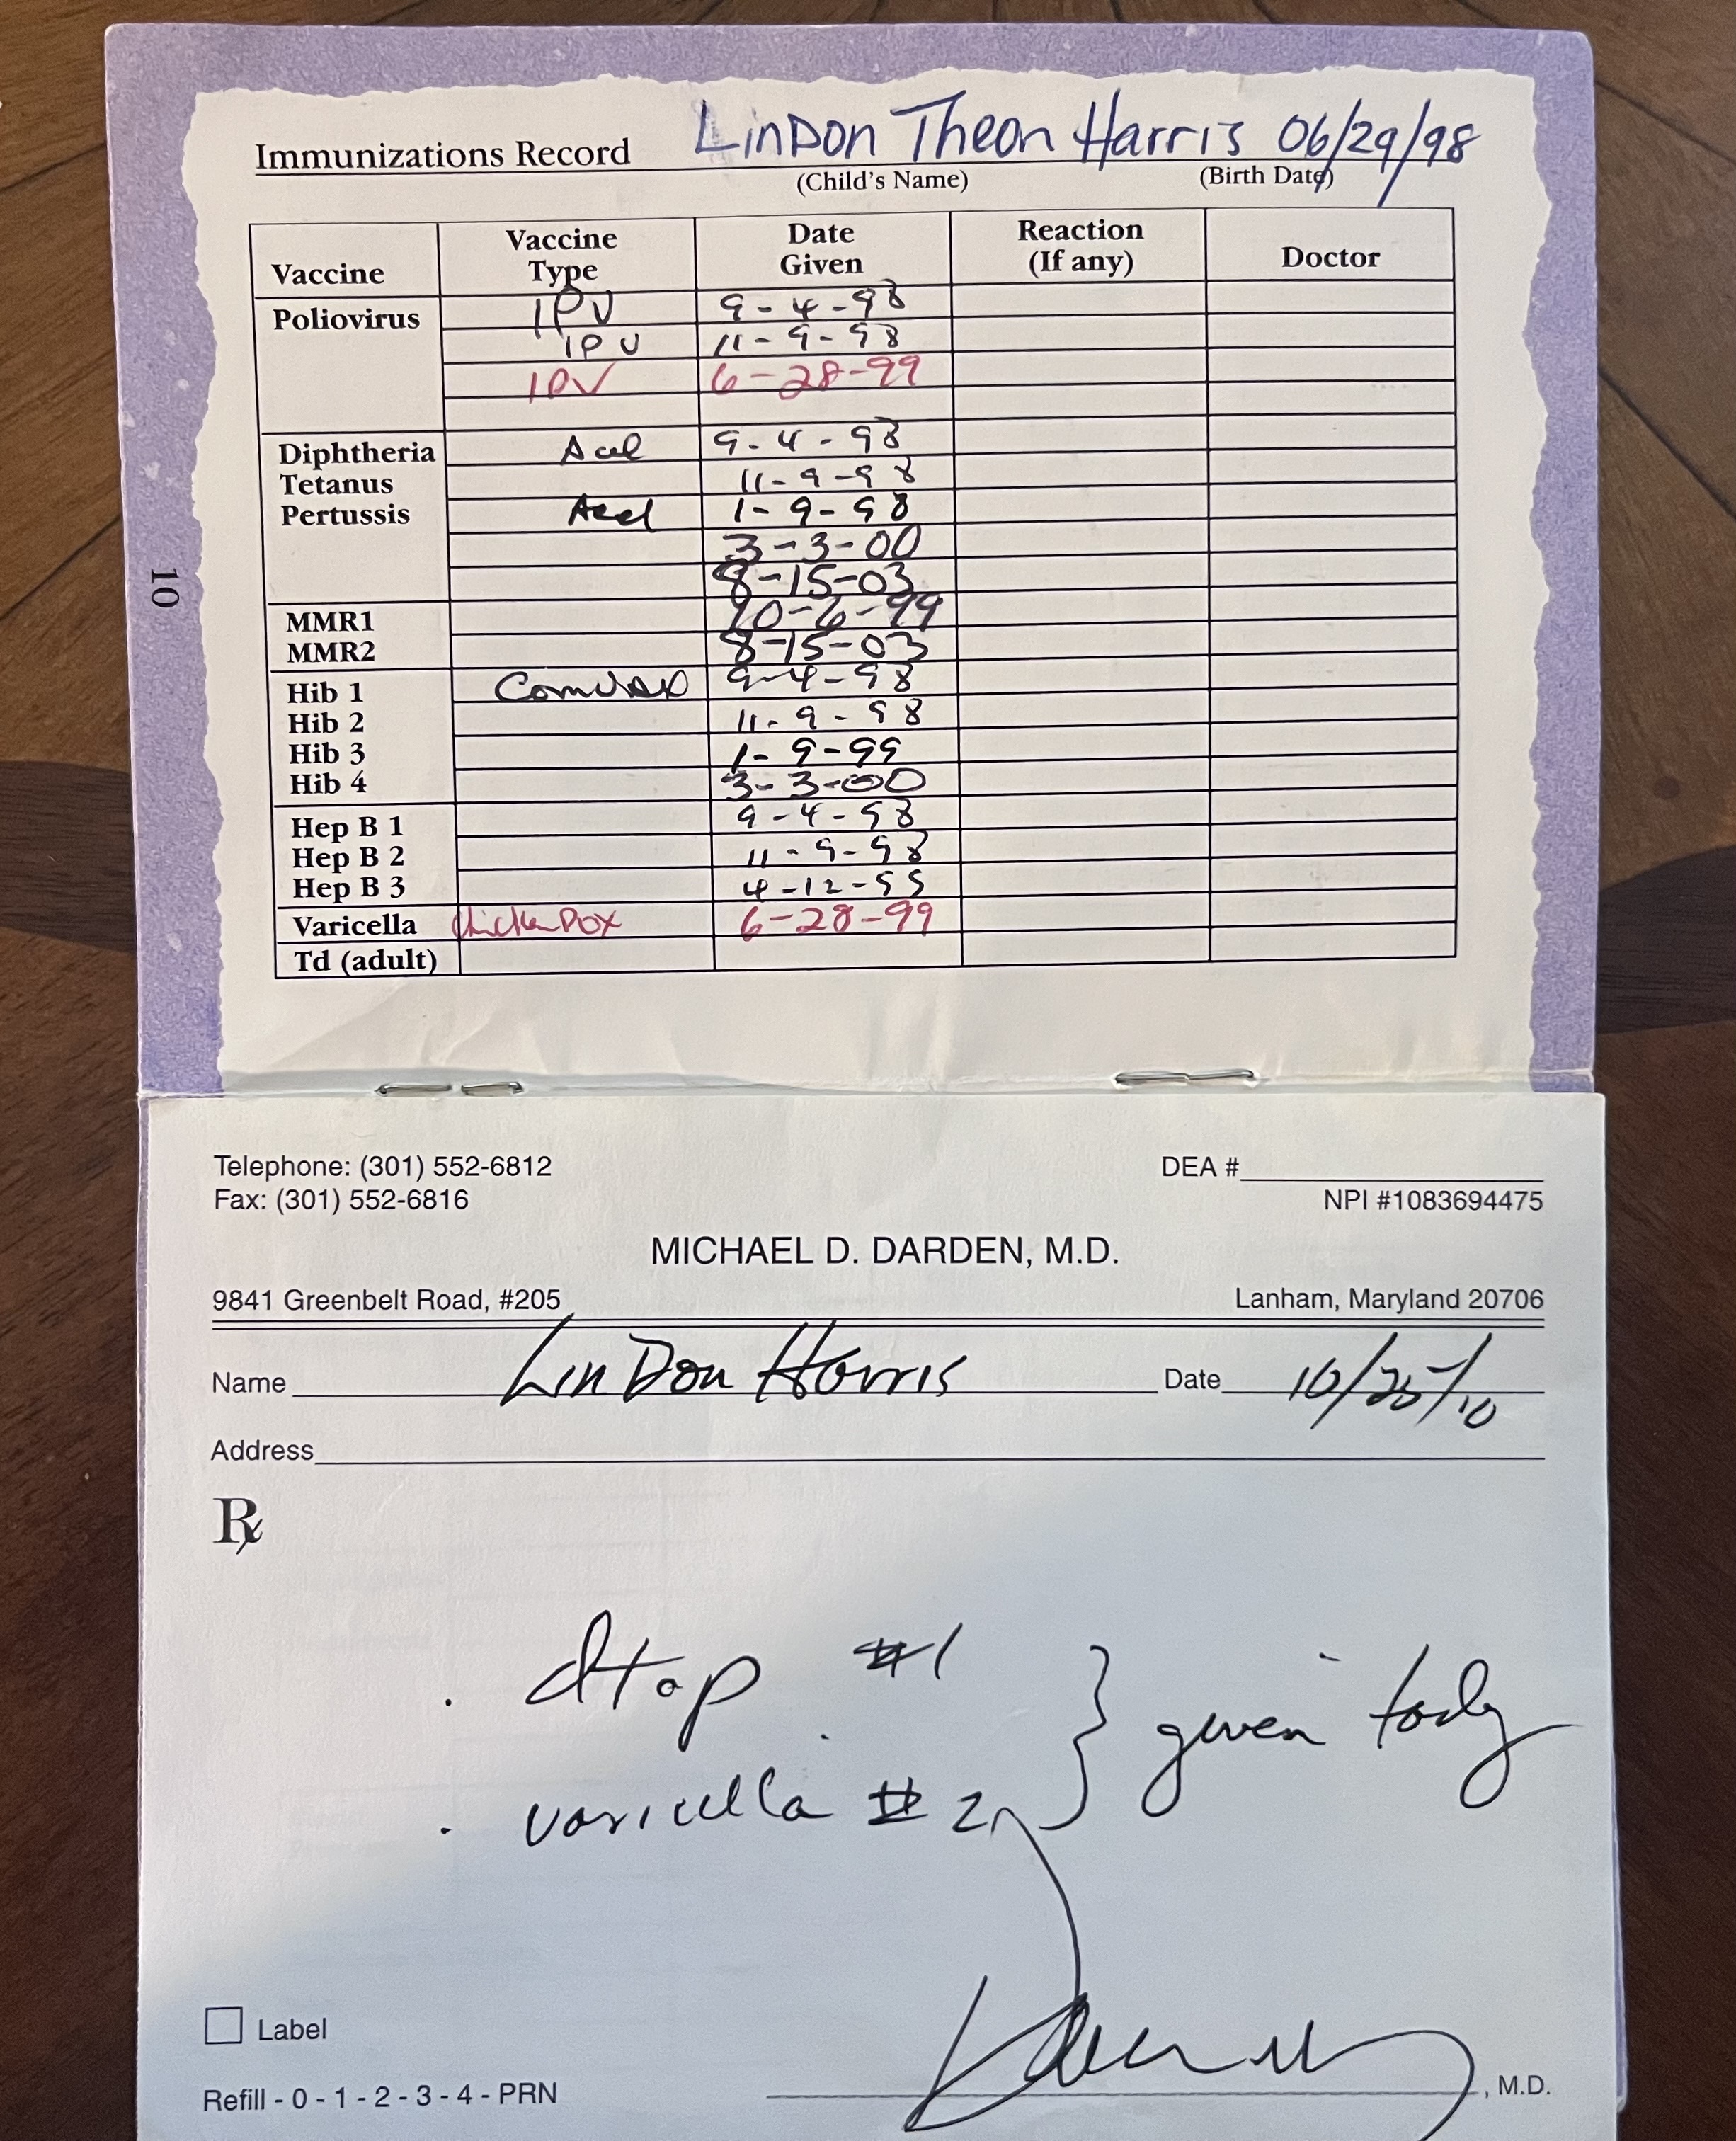 Immunizations Record LinDon Theon Harris 06/29/98
(Child's Name) (Birth Date)
Vaccine Vaccine Type Date Given Reaction (If any) Doctor
Poliovirus IPV 9-4-98
IPV 11-9-98
IPV 6-28-99
Diphtheria Acel 9-4-98
Tetanus 11-9-98
Pertussis Acel 1-9-98
3-3-00
8-15-03
MMR1 10-6-99
MMR2 8-15-03
Hib 1 9-4-98
Hib 2 11-9-98
Hib 3 1-9-99
Hib 4 3-3-00
Hep B 1 9-4-98
Hep B 2 11-9-98
Hep B 3 4-12-99
Varicella ChickenPox 6-28-99
Td (adult)
10
Telephone: (301) 552-6812 DEA #
Fax: (301) 552-6816 NPI #1083694475
MICHAEL D. DARDEN, M.D.
9841 Greenbelt Road, #205 Lanham, Maryland 20706
Name LinDon Harris Date 10/25/10
Address
Rx
. dtap #1
. varicella #2 } given today
Label
Refill - 0 - 1 - 2 - 3 - 4 - PRN , M.D.